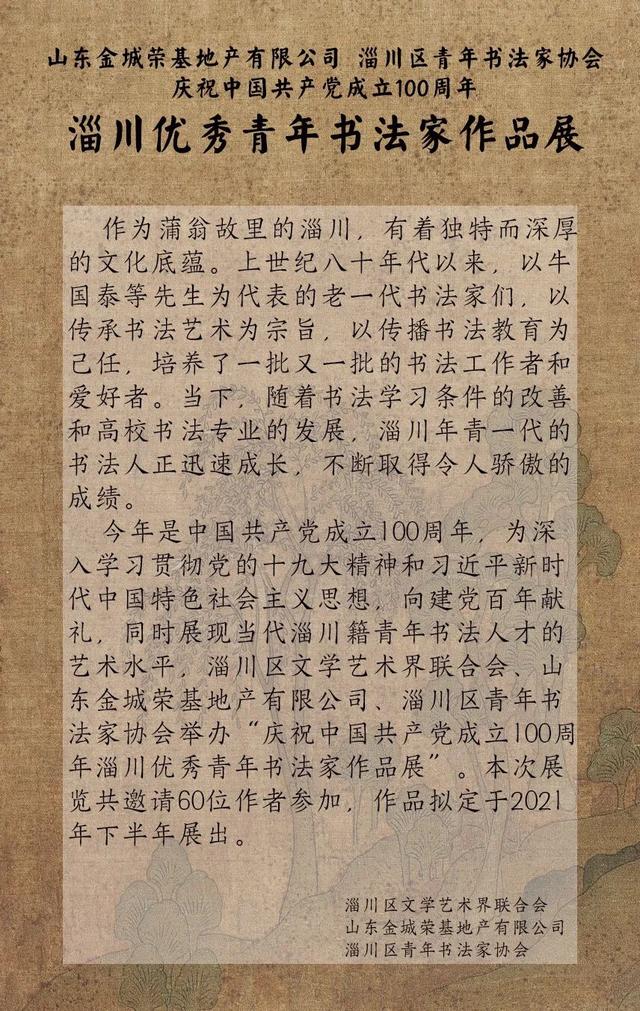 山东金城荣基地产有限公司 淄川区青年书法家协会
庆祝中国共产党成立100周年
淄川优秀青年书法家作品展
作为蒲翁故里的淄川，有着独特而深厚
的文化底蕴。上世纪八十年代以来，以牛
国泰等先生为代表的老一代书法家们，以
传承书法艺术为宗旨，以传播书法教育为
己任，培养了一批又一批的书法工作者和
爱好者。当下，随着书法学习条件的改善
和高校书法专业的发展，淄川年青一代的
书法人正迅速成长，不断取得令人骄傲的
成绩。
今年是中国共产党成立100周年，为深
入学习贯彻党的十九大精神和习近平新时
代中国特色社会主义思想，向建党百年献
礼，同时展现当代淄川籍青年书法人才的
艺术水平，淄川区文学艺术界联合会、山
东金城荣基地产有限公司、淄川区青年书
法家协会举办“庆祝中国共产党成立100周
年淄川优秀青年书法家作品展”。本次展
览共邀请60位作者参加，作品拟定于2021
年下半年展出。
淄川区文学艺术界联合会
山东金城荣基地产有限公司
淄川区青年书法家协会